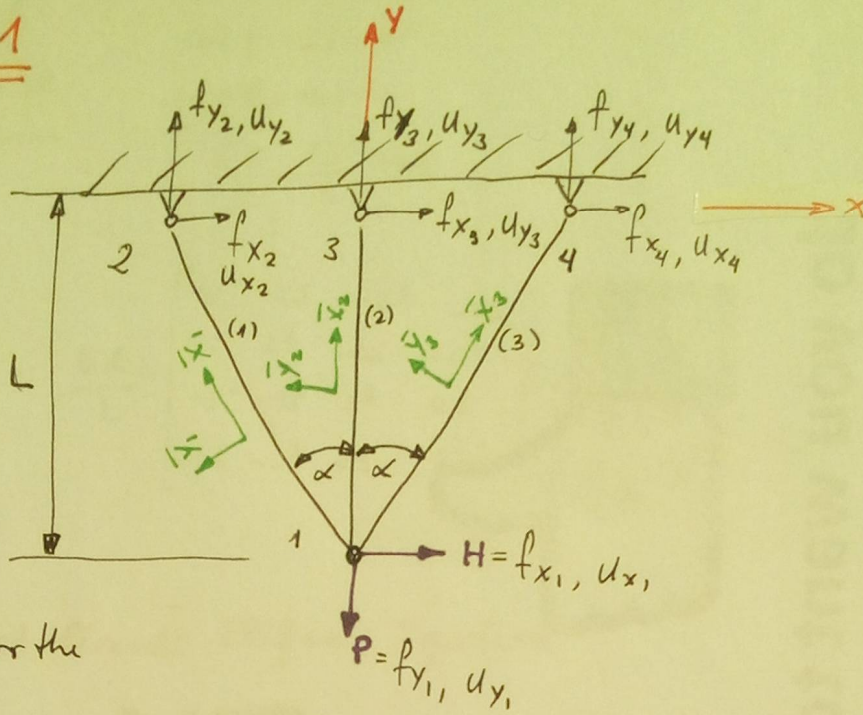 1
Y
f_y2, u_y2
f_y3, u_y3
f_y4, u_y4
x
f_x2
u_x2
f_x3, u_y3
f_x4, u_x4
2
3
4
(1)
(2)
(3)
x̄2
ȳ2
x̄3
ȳ3
L
α
α
1
H = f_x1, u_x1
P = f_y1, u_y1
the